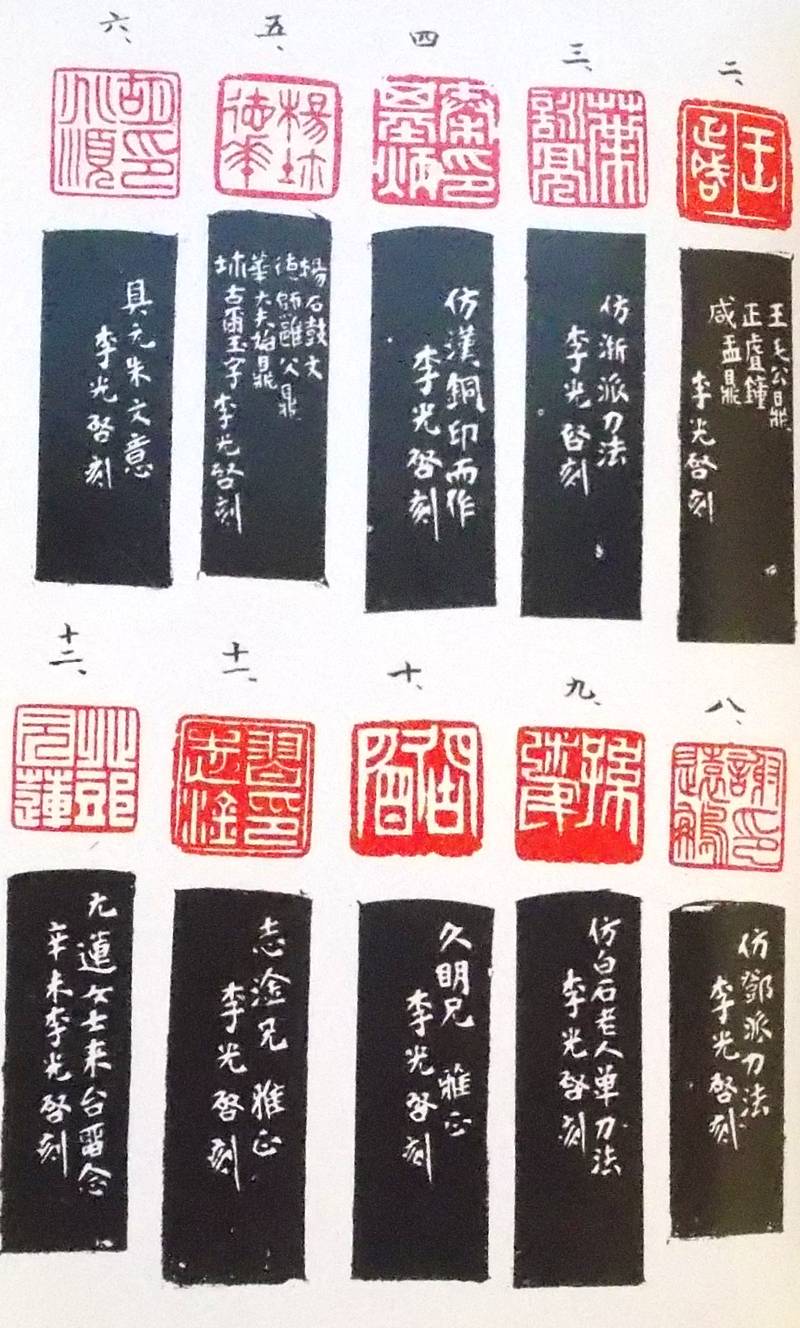 二、
王正啓
王毛公鼎
正虘鐘
咸盂鼎
李光啓刻
三、
仿浙派刀法
李光啓刻
四
仿漢銅印而作
李光啓刻
五、
楊坲德華
楊石鼓文
德師雝公鼎
華大夫始鼎
坲古爾玉字 李光啓刻
六、
胡印兆順
具元朱文意
李光啓刻
八、
謝印遠鵬
仿鄧派刀法
李光啓刻
九、
仿白石老人單刀法
李光啓刻
十、
久明兄 雅正
李光啓刻
十一、
習印志淦
志淦兄 雅正
李光啓刻
十二、
元蓮女士來台留念
辛未李光啓刻